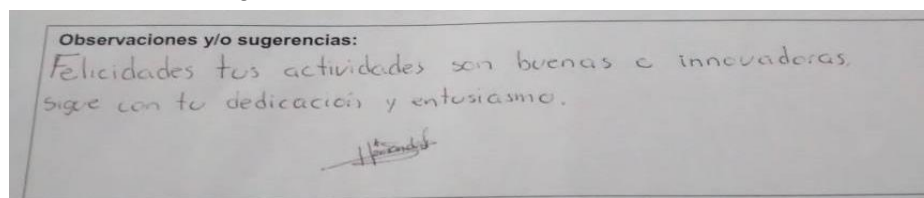 Observaciones y/o sugerencias:
Felicidades tus actividades son buenas e innovadoras.
sigue con tu dedicación y entusiasmo.